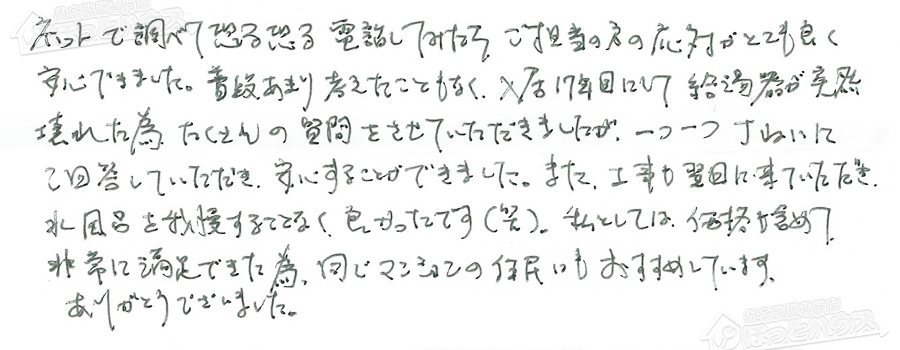 ネットで調べて恐る恐る電話してみたら、ご担当の方の応対がとても良く
安心できました。普段あまり考えたこともなく、入居17年目にして給湯器が突然
壊れた為、たくさんの質問をさせていただきましたが、一つ一つ丁ねいに
ご回答していただき、安心することができました。また、工事も翌日に来ていただき、
水風呂を我慢することなく、良かったです(笑)。私としては、価格も含めて
非常に満足できた為、同じマンションの住民にもおすすめしています。
ありがとうございました。
ほっとハウス
ほっとハウス